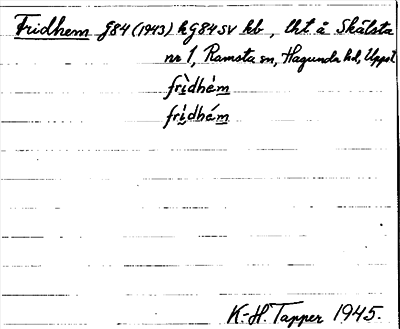 Fridhem G84 (1943) kG84SV kb, lht å Skälsta
nr 1, Ramsta sn, Hagunda hd, Uppsl.
frìdhém
frìdhám
K-H. Tapper 1945.